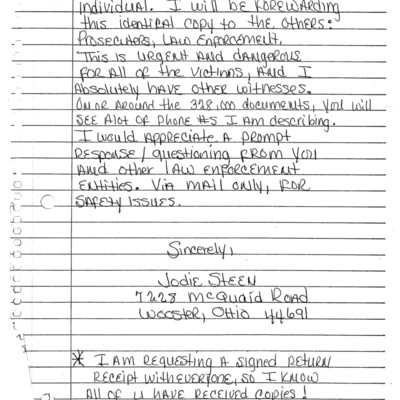 individual. I will be forewarding
this identical copy to the others:
Prosecutors, Law Enforcement.
This is urgent and dangerous
for all of the victims, and I
absolutely have other witnesses.
On or around the 328,000 documents, you will
see alot of phone #s I am describing.
I would appreciate a prompt
response/questioning from you
and other law enforcement
entities. Via mail only, for
safety issues.
Sincerely,
Jodie Steen
7228 McQuaid Road
Wooster, Ohio 44691
* I am requesting a signed return
receipt with everyone, so I know
all of u have received copies!